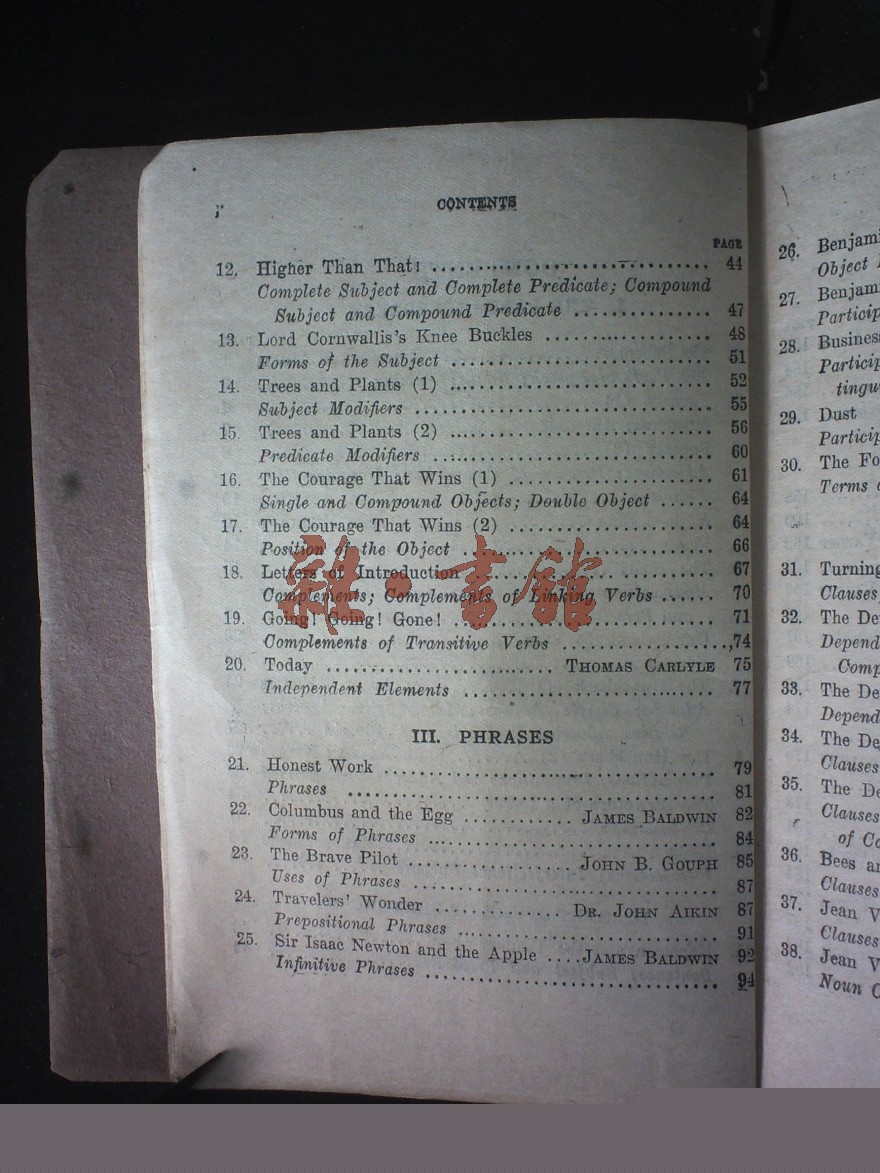 CONTENTS
PAGE
12. Higher Than That! ........ 44
Complete Subject and Complete Predicate; Compound
Subject and Compound Predicate ........ 47
13. Lord Cornwallis's Knee Buckles ........ 48
Forms of the Subject ........ 51
14. Trees and Plants (1) ........ 52
Subject Modifiers ........ 55
15. Trees and Plants (2) ........ 56
Predicate Modifiers ........ 60
16. The Courage That Wins (1) ........ 61
Single and Compound Objects; Double Object ...... 64
17. The Courage That Wins (2) ........ 64
Position of the Object ........ 66
18. Letters of Introduction ........ 67
Complements; Complements of Linking Verbs ...... 70
19. Going! Going! Gone! ........ 71
Complements of Transitive Verbs ........ 74
20. Today ........ THOMAS CARLYLE 75
Independent Elements ........ 77
III. PHRASES
21. Honest Work ........ 79
Phrases ........ 81
22. Columbus and the Egg ........ JAMES BALDWIN 82
Forms of Phrases ........ 84
23. The Brave Pilot ........ JOHN B. GOUPH 85
Uses of Phrases ........ 87
24. Travelers' Wonder ........ DR. JOHN AIKIN 87
Prepositional Phrases ........ 91
25. Sir Isaac Newton and the Apple ....JAMES BALDWIN 92
Infinitive Phrases ........ 94
26. Benjami
Object
27. Benjam
Particip
28. Business
Particip
tingu
29. Dust
Particip
30. The Fo
Terms
31. Turning
Clauses
32. The De
Depend
Comp
33. The De
Depend
34. The De
Clauses
35. The De
Clauses
of Co
36. Bees a
Clauses
37. Jean V
Clauses
38. Jean V
Noun C
書館